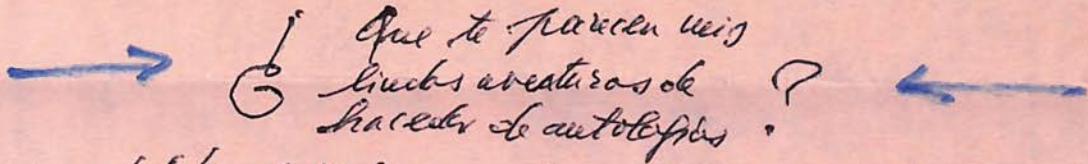 ¿ Que te parecen mis
lindas aventuras de ?
hacedor de antologías